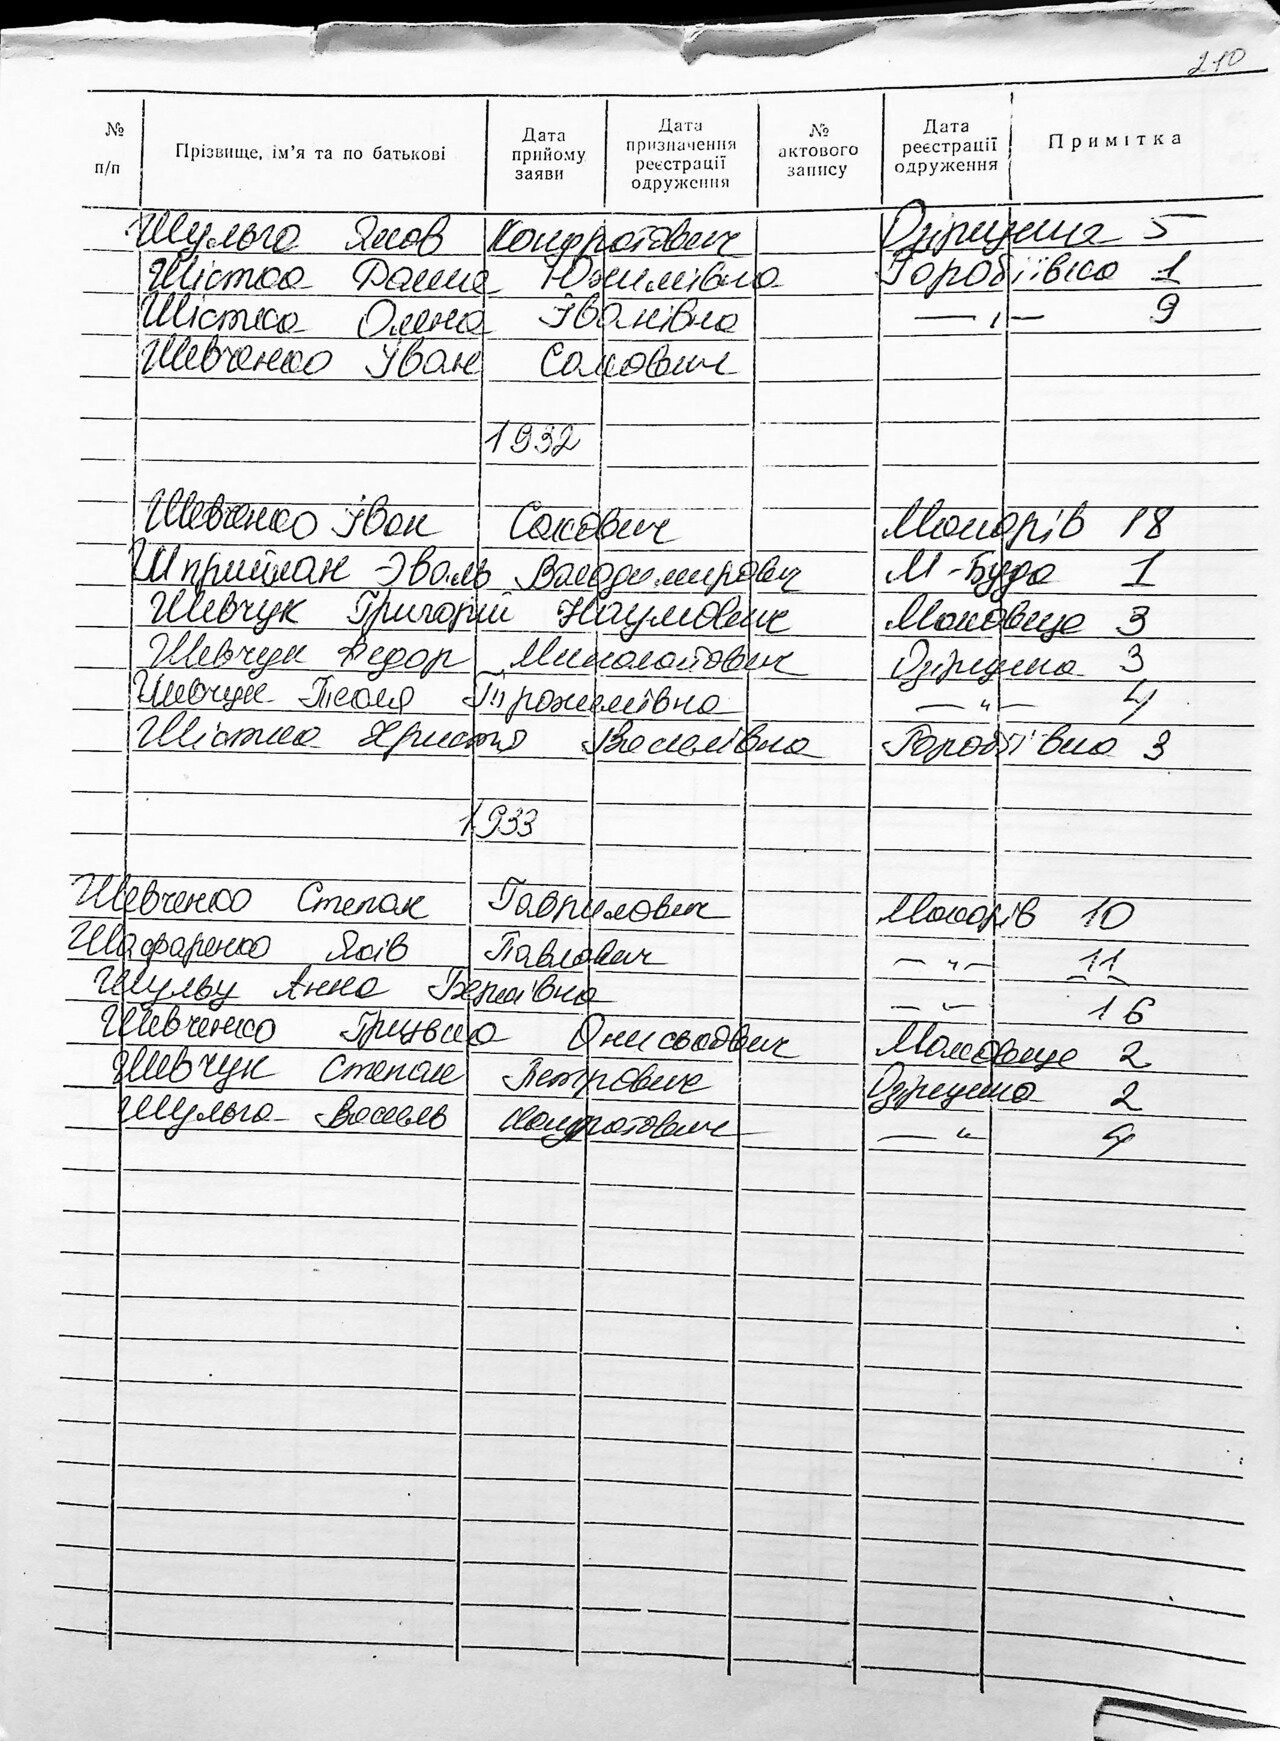 210
№ п/п Прізвище, ім'я та по батькові Дата прийому заяви Дата призначення реєстрації одруження № актового запису Дата реєстрації одруження Примітка
Шульга Яков Кондратович Озірщина 5
Шістка Юхимівна Горобіївка 1
Шістка Олена Іванівна — " — 9
Шевченко Іван Савович
1932
Шевченко Іван Савович Макарів 18
Эваль Володимирович М-Буда 1
Шевчук Григорій Наумович Маковище 3
Шевчук Федор Озірщина 3
Шевчук Трохимівна — " — 4
Шістка Христя Василівна Горобіївка 3
1933
Шевченко Степан Гаврилович Макарів 10
Шафаренко Яків Павлович — " — 11
Анна — " — 16
Шевченко Грицько Онисьович Маковище 2
Шевчук Степан Петрович Озірщина 2
Шульга Василь Кондратович — " 4